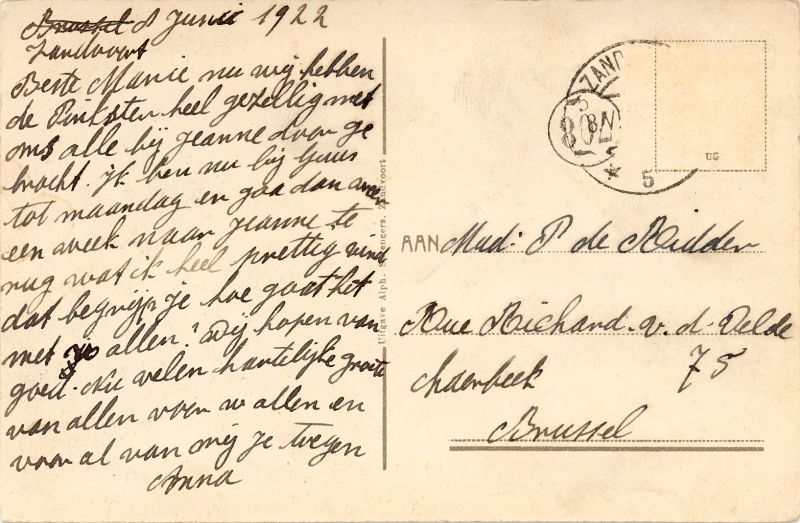 Brussel 8 Juni 1922
Zandvoort
Beste Marie nu wij hebben
de Pinksten heel gezellig met
ons alle bij Jeanne door ge
bracht. Ik ben nu bij Guus
tot maandag en gaa dan weer
een week naar Jeanne te
rug wat ik heel prettig vind
dat begrijp je hoe gaat het
met jo allen? Wij hopen van
goed. Nu velen hartelijke groete
van allen voor u allen en
voor al van mij je
Anna
Uitgave Alph. Zandvoort
ZAND
5
8
* 5
UG
AAN Mad: P de Ridder
Rue Richard. v. d. Velde
chaerbeek 75
Brussel